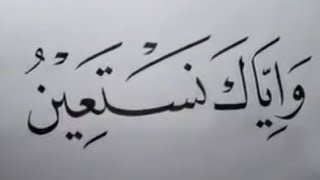 وَاِيَّاكَ نَسْتَعِيْنُ